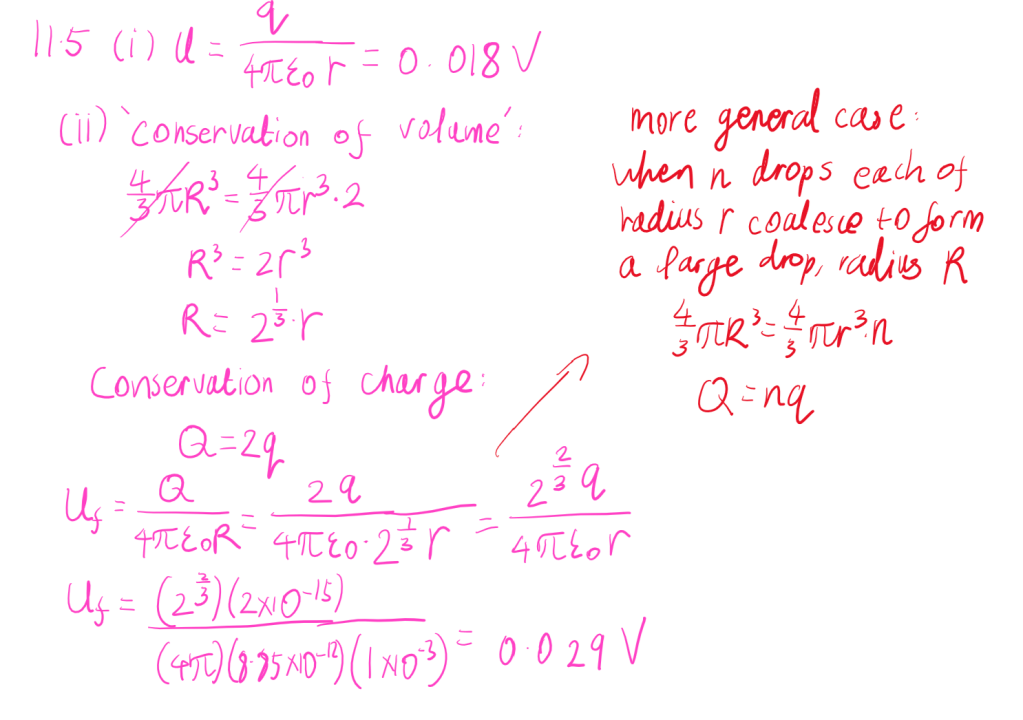 11.5 (i) U = q/(4πε₀r) = 0.018 V
(ii) 'conservation of volume':
4/3 πR³ = 4/3 πr³·2
R³ = 2r³
R = 2^(1/3)·r
Conservation of charge:
Q = 2q
U_f = Q/(4πε₀R) = 2q/(4πε₀·2^(1/3) r) = 2^(2/3) q/(4πε₀r)
U_f = (2^(2/3))(2×10^-15)/((4π)(8.85×10^-12)(1×10^-3)) = 0.029 V
more general case:
when n drops each of
radius r coalesce to form
a large drop, radius R
4/3 πR³ = 4/3 πr³·n
Q = nq